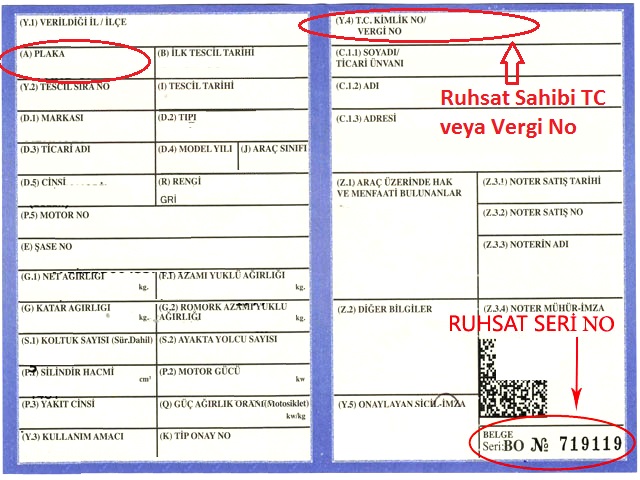 (Y.1) VERİLDİĞİ İL / İLÇE
(A) PLAKA
(B) İLK TESCİL TARİHİ
(Y.2) TESCİL SIRA NO
(I) TESCİL TARİHİ
(D.1) MARKASI
(D.2) TIPI
(D.3) TİCARİ ADI
(D.4) MODEL YILI
(J) ARAÇ SINIFI
(D.5) CİNSİ
(R) RENGİ
GRİ
(P.5) MOTOR NO
(E) ŞASE NO
(G.1) NET AĞIRLIĞI
kg.
(F.1) AZAMI YUKLÜ AĞIRLIĞI
kg.
(G) KATAR AGIRLIGI
kg.
(G.2) ROMORK AZAMI YUKLU
AĞIRLIĞI
kg.
(S.1) KOLTUK SAYISI (Sür.Dahil)
(S.2) AYAKTA YOLCU SAYISI
(P.1) SİLİNDİR HACMİ
cm³
(P.2) MOTOR GÜCÜ
kw
(P.3) YAKIT CİNSİ
(Q) GÜÇ AĞIRLIK ORANI(Motosiklet)
kw/kg
(Y.3) KULLANIM AMACI
(K) TİP ONAY NO
(Y.4) T.C. KİMLİK NO/
VERGİ NO
(C.1.1) SOYADI/
TİCARİ ÜNVANI
(C.1.2) ADI
Ruhsat Sahibi TC
veya Vergi No
(C.1.3) ADRESİ
(Z.1) ARAÇ ÜZERİNDE HAK
VE MENFAATİ BULUNANLAR
(Z.3.1) NOTER SATIŞ TARİHİ
(Z.3.2) NOTER SATIŞ NO
(Z.3.3) NOTERİN ADI
(Z.2) DİĞER BİLGİLER
(Z.3.4) NOTER MÜHÜR-İMZA
RUHSAT SERİ NO
(Y.5) ONAYLAYAN SİCİL-İMZA
BELGE
Seri:BO № 719119